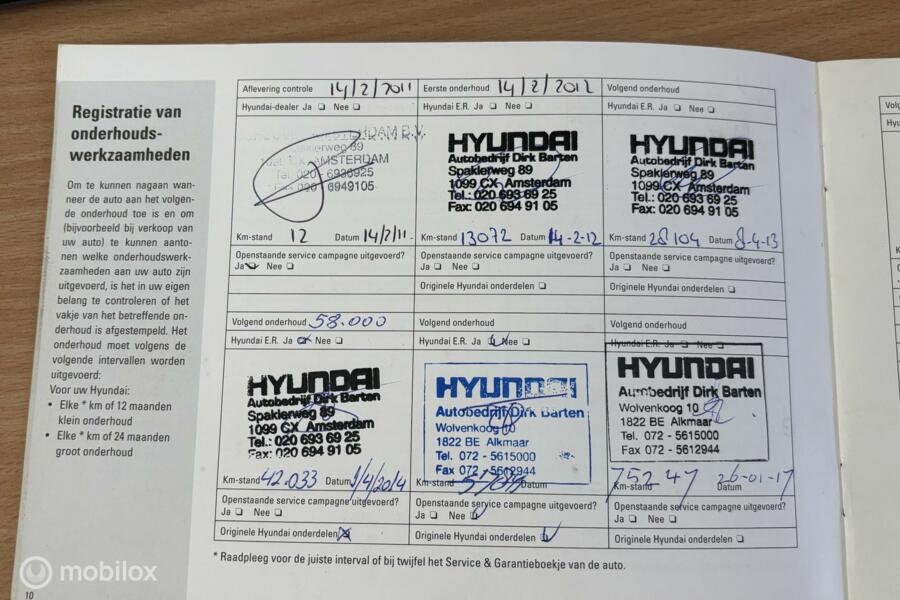 Registratie van
onderhouds-
werkzaamheden
Om te kunnen nagaan wan-
neer de auto aan het volgen-
de onderhoud toe is en om
(bijvoorbeeld bij verkoop van
uw auto) te kunnen aanto-
nen welke onderhoudswerk-
zaamheden aan uw auto zijn
uitgevoerd, is het in uw eigen
belang te controleren of het
vakje van het betreffende on-
derhoud is afgestempeld. Het
onderhoud moet volgens de
volgende intervallen worden
uitgevoerd:
Voor uw Hyundai:
• Elke * km of 12 maanden
klein onderhoud
• Elke * km of 24 maanden
groot onderhoud
10
Aflevering controle 14/2/2011
Hyundai-dealer Ja Nee
AMSTERDAM B.V.
Spaklerweg 89
AMSTERDAM
Tel. 020 - 6936925
020 6949105
Km-stand 12 Datum 14/2/11
Openstaande service campagne uitgevoerd?
Ja Nee
Eerste onderhoud 14/2/2012
Hyundai E.R. Ja Nee
HYUNDAI
Autobedrijf Dirk Barten
Spaklerweg 89
1099 CX Amsterdam
Tel.: 020 693 69 25
Fax: 020 694 91 05
Km-stand 13072 Datum 14-2-12
Openstaande service campagne uitgevoerd?
Ja Nee
Originele Hyundai onderdelen
Volgend onderhoud
Hyundai E.R. Ja Nee
HYUNDAI
Autobedrijf Dirk Barten
Spaklerweg 89
1099 CX Amsterdam
Tel.: 020 693 69 25
Fax: 020 694 91 05
Km-stand 28104 Datum 8-4-13
Openstaande service campagne uitgevoerd?
Ja Nee
Originele Hyundai onderdelen
Volgend onderhoud 58.000
Hyundai E.R. Ja Nee
HYUNDAI
Autobedrijf Dirk Barten
Spaklerweg 89
1099 CX Amsterdam
Tel.: 020 693 69 25
Fax: 020 694 91 05
Km-stand 42.033 Datum 1/4/2014
Openstaande service campagne uitgevoerd?
Ja Nee
Originele Hyundai onderdelen
Volgend onderhoud
Hyundai E.R. Ja Nee
HYUNDAI
Autobedrijf Dirk Barten
Wolvenkoog 10
1822 BE Alkmaar
Tel. 072 - 5615000
Fax 072 - 5612944
Km-stand Datum
Openstaande service campagne uitgevoerd?
Ja Nee
Originele Hyundai onderdelen
Volgend onderhoud
Hyundai E.R. Ja Nee
HYUNDAI
Autobedrijf Dirk Barten
Wolvenkoog 10
1822 BE Alkmaar
Tel. 072 - 5615000
Fax 072 - 5612944
Km-stand 75247 Datum 26-01-17
Openstaande service campagne uitgevoerd?
Ja Nee
Originele Hyundai onderdelen
* Raadpleeg voor de juiste interval of bij twijfel het Service & Garantieboekje van de auto.
mobilox